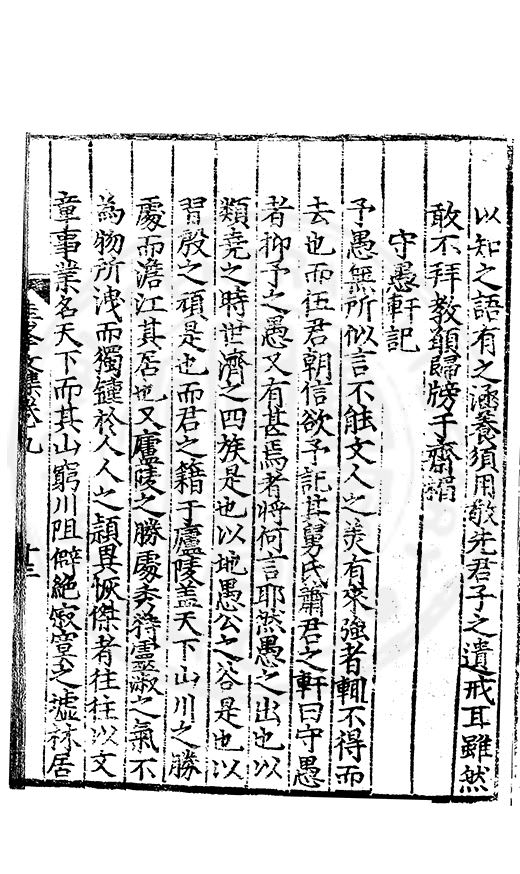 以知之語有之涵養須用敬先君子之遺戒耳雖然
敢不拜教顧歸牓于齋楣
守愚軒記
予愚無所似言不能文人之羙有來強者輒不得而
去也而伍君朝信欲予記其舅氏蕭君之軒曰守愚
者抑予之愚又有甚焉者將何言耶然愚之出也以
類堯之時世濟之四族是也以地愚公之谷是也以
習殷之頑是也而君之籍于廬陵盖天下山川之勝
處而澹江其居也又廬陵之勝處夫符靈淑之氣不
為物所洩而獨鍾於人人之頴異恢傑者往往以文
章事業名天下而其山窮川阻僻絶𡧯寞之墟林居
文集卷九
十三